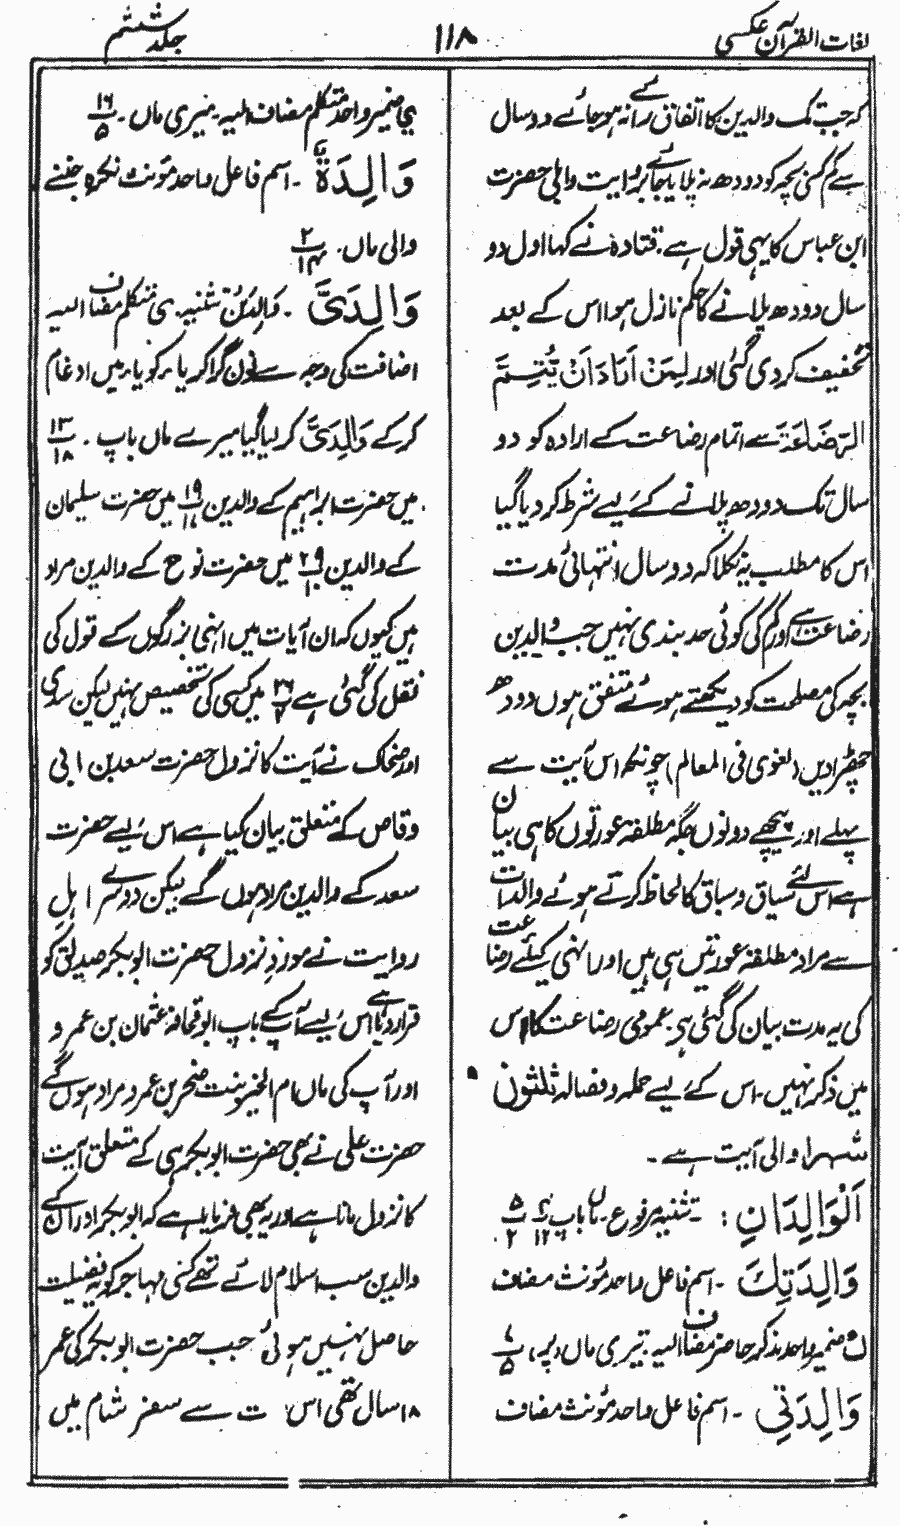 لغات القرآن عکسی
۱۱۸
جلد ششم
کہ جب تک والدین کا اتفاق رائے نہ ہو جائے دو سال
سے کم کسی بچہ کو دودھ نہ پلایا جائے پر آیت والی حضرت
ابن عباس کا یہی قول ہے۔ قتادہ نے کہا اول دو
سال دودھ پلانے کا حکم نازل ہوا اس کے بعد
تخفیف کر دی گئی اور لِمَنْ اَرَادَ اَنْ یُّتِمَّ
الرَّضَاعَۃَ سے اتمام رضاعت کے ارادہ کو دو
سال تک دودھ پلانے کے لیے شرط کر دیا گیا
اس کا مطلب یہ نکلا کہ دو سال انتہائی مدت
رضاعت ہے اور کم کی کوئی حد بندی نہیں جب والدین
بچہ کی مصلحت کو دیکھتے ہوئے متفق ہوں دودھ
چھڑا دیں (لغوی فی المعالم) چونکہ اس آیت سے
پہلے اور پیچھے دونوں جگہ مطلقہ عورتوں کا ہی بیان
ہے اس لئے سیاق و سباق کا لحاظ کرتے ہوئے والدات
سے مراد مطلقہ عورتیں ہی ہیں اور انہی کیلئے رضاعت
کی یہ مدت بیان کی گئی ہے عمومی رضاعت کا اس
میں ذکر نہیں۔ اس کے لیے حملہ وفصالہ ثلثون
شہرا والی آیت ہے۔
اَلْوَالِدَانِ : تثنیہ مرفوع۔ ماں باپ
وَالِدَتِکَ ۔ اسم فاعل واحد مؤنث مضاف
ک ضمیر واحد مذکر حاضر مضاف الیہ۔ تیری ماں
۵
وَالِدَتِی ۔ اسم فاعل واحد مؤنث مضاف
ی ضمیر واحد متکلم مضاف الیہ۔ میری ماں۔ ۱۶
۵
وَالِدَۃٌ ۔ اسم فاعل واحد مؤنث نکرہ جننے
والی ماں۔ ۲
۱۴
وَالِدَیَّ ۔ وَالِدَیْنِ تثنیہ۔ ی متکلم مضاف الیہ
اضافت کی وجہ سے نون گرا کر یاء کو یاء میں ادغام
کر کے وَالِدَیَّ کر لیا گیا میرے ماں باپ ۔ ۱۳
۱۸
میں حضرت ابراہیم کے والدین ۱۹ میں حضرت سلیمان
کے والدین ۲۹ میں حضرت نوح کے والدین مراد
ہیں کیوں کہ ان آیات میں انہی بزرگوں کے قول کی
نقل کی گئی ہے ۲۶ میں کسی کی تخصیص نہیں لیکن سدی
اور ضحاک نے آیت کا نزول حضرت سعد بن ابی
وقاص کے متعلق بیان کیا ہے اس لیے حضرت
سعد کے والدین مراد ہوں گے لیکن دوسرے اہل
روایت نے مورد نزول حضرت ابوبکر صدیق کو
قرار دیا ہے اس لیے آپ کے باپ ابو قحافہ عثمان بن عمرو
اور آپ کی ماں ام الخیر بنت صخر بن عمر و مراد ہوں گے
حضرت علی نے بھی حضرت ابوبکر ہی کے متعلق آیت
کا نزول مانا ہے اور یہ بھی فرمایا ہے کہ ابوبکر اور ان کے
والدین سب اسلام لائے تھے کسی مہاجر کو یہ فضیلت
حاصل نہیں ہوئی جب حضرت ابوبکر کی عمر
۱۸ سال تھی اس ت سے سفر شام میں